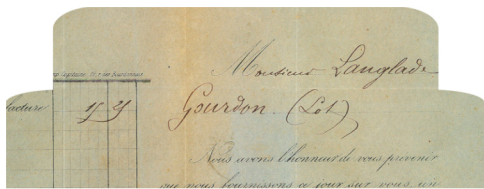 Monsieur Langlade
Gourdon (Lot)
facture
Nous avons l'honneur de vous prévenir
que nous fournissons ce jour sur vous, un